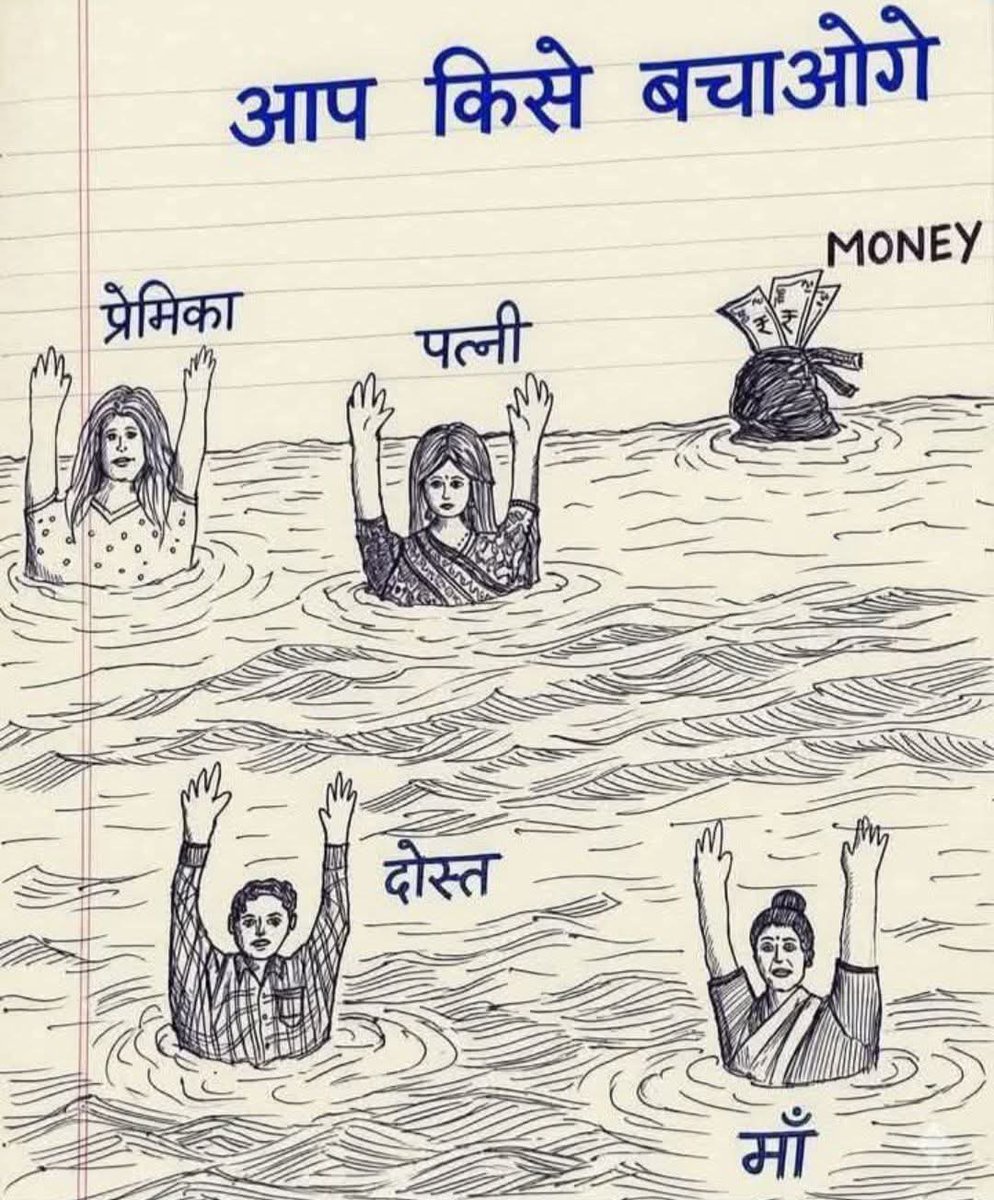 आप किसे बचाओगे
MONEY
प्रेमिका
पत्नी
₹ ₹
दोस्त
माँ